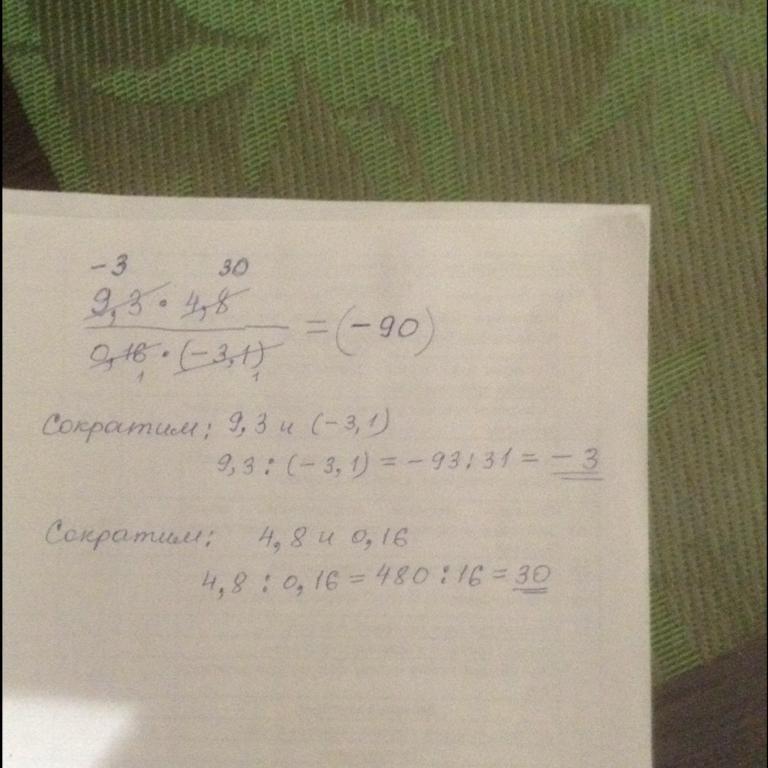 -3 30
9,3 • 4,8
0,16 • (-3,1) = (-90)
1 1
Сократим: 9,3 и (-3,1)
9,3 : (-3,1) = -93:31 = -3
Сократим: 4,8 и 0,16
4,8 : 0,16 = 480 : 16 = 30